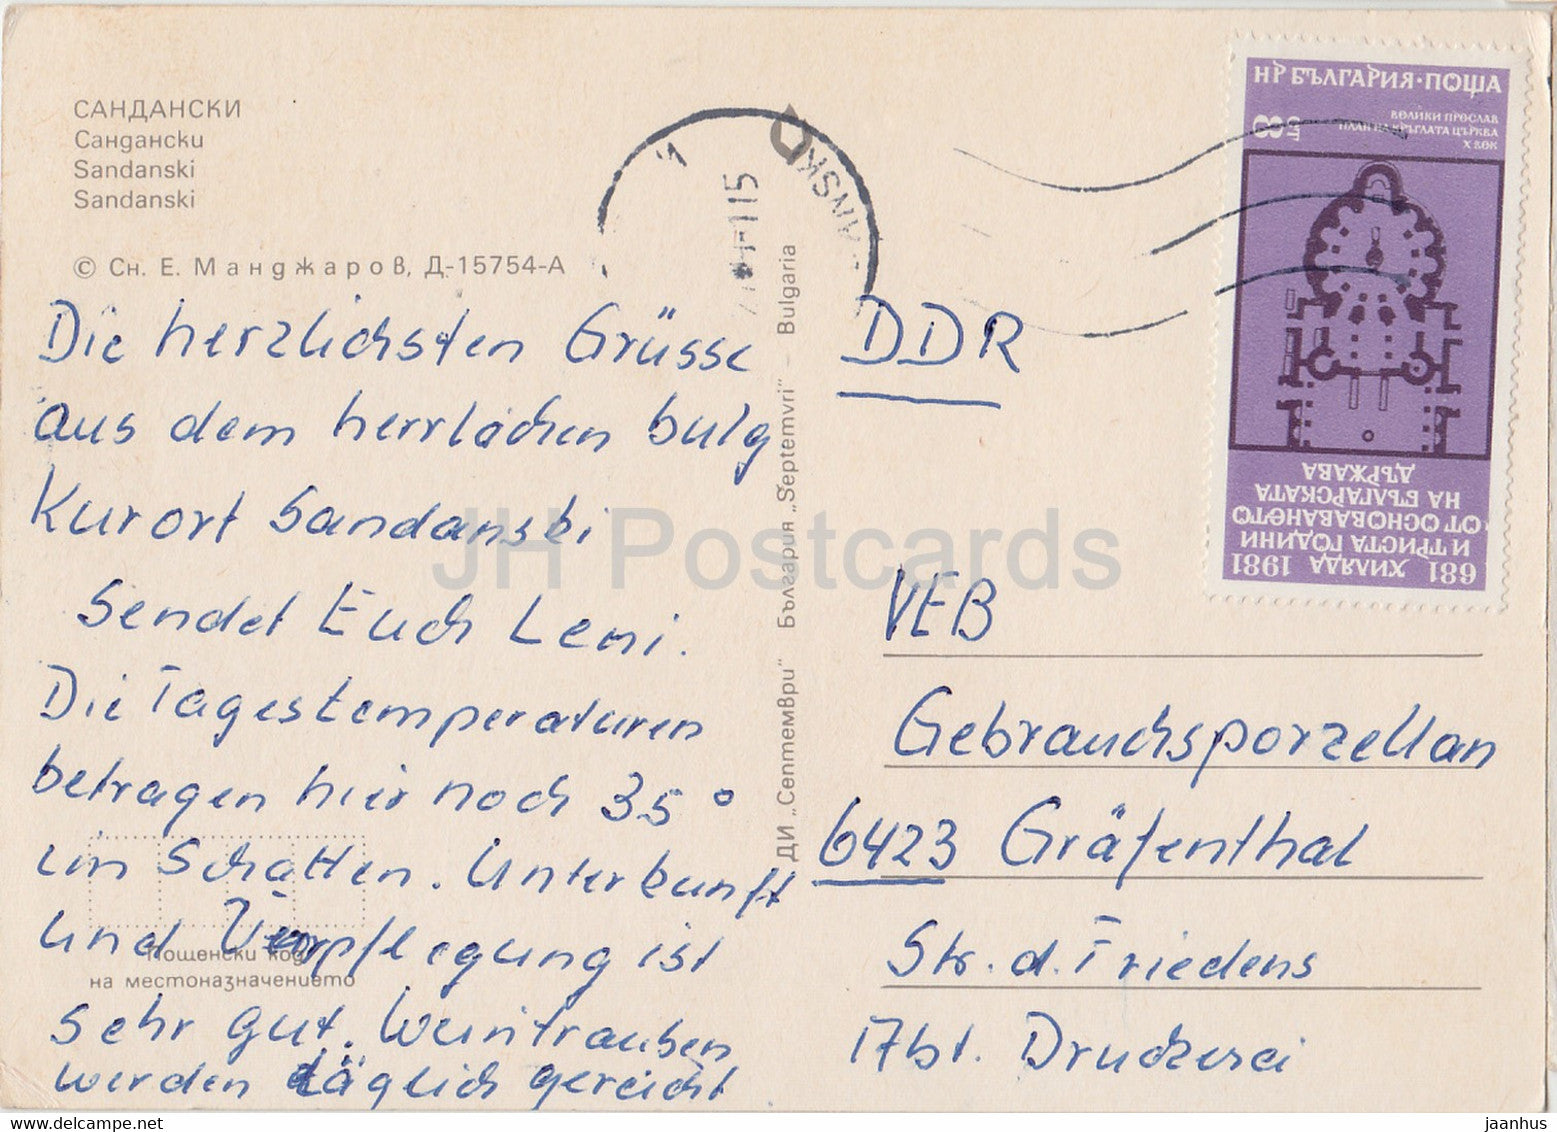 САНДАНСКИ
Сандански
Sandanski
Sandanski
© Сн. Е. Манджаров, Д-15754-А
Die herzlichsten Grüsse
aus dem herrlichen bulg
Kurort Sandanski
Sendet Euch Leni.
Die Tagestemperaturen
betragen hier noch 35°
im Schatten. Unterkunft
und Verpflegung ist
sehr gut. Weintrauben
werden täglich gereicht
Пощенски код
на местоназначението
ДИ „Септември“ България „Septemvri“ - Bulgaria
НР БЪЛГАРИЯ·ПОЩА
ВЕЛИКИ ПРЕСЛАВ
ПЛАН НА КРЪГЛАТА ЦЪРКВА
X ВЕК
8 СТ
681 ХИЛЯДА 1981
И ТРИСТА ГОДИНИ
ОТ ОСНОВАВАНЕТО
НА БЪЛГАРСКАТА
ДЪРЖАВА
DDR
VEB
Gebrauchsporzellan
6423 Gräfenthal
Str. d. Friedens
Abt. Druckerei
JH Postcards
jaanhus